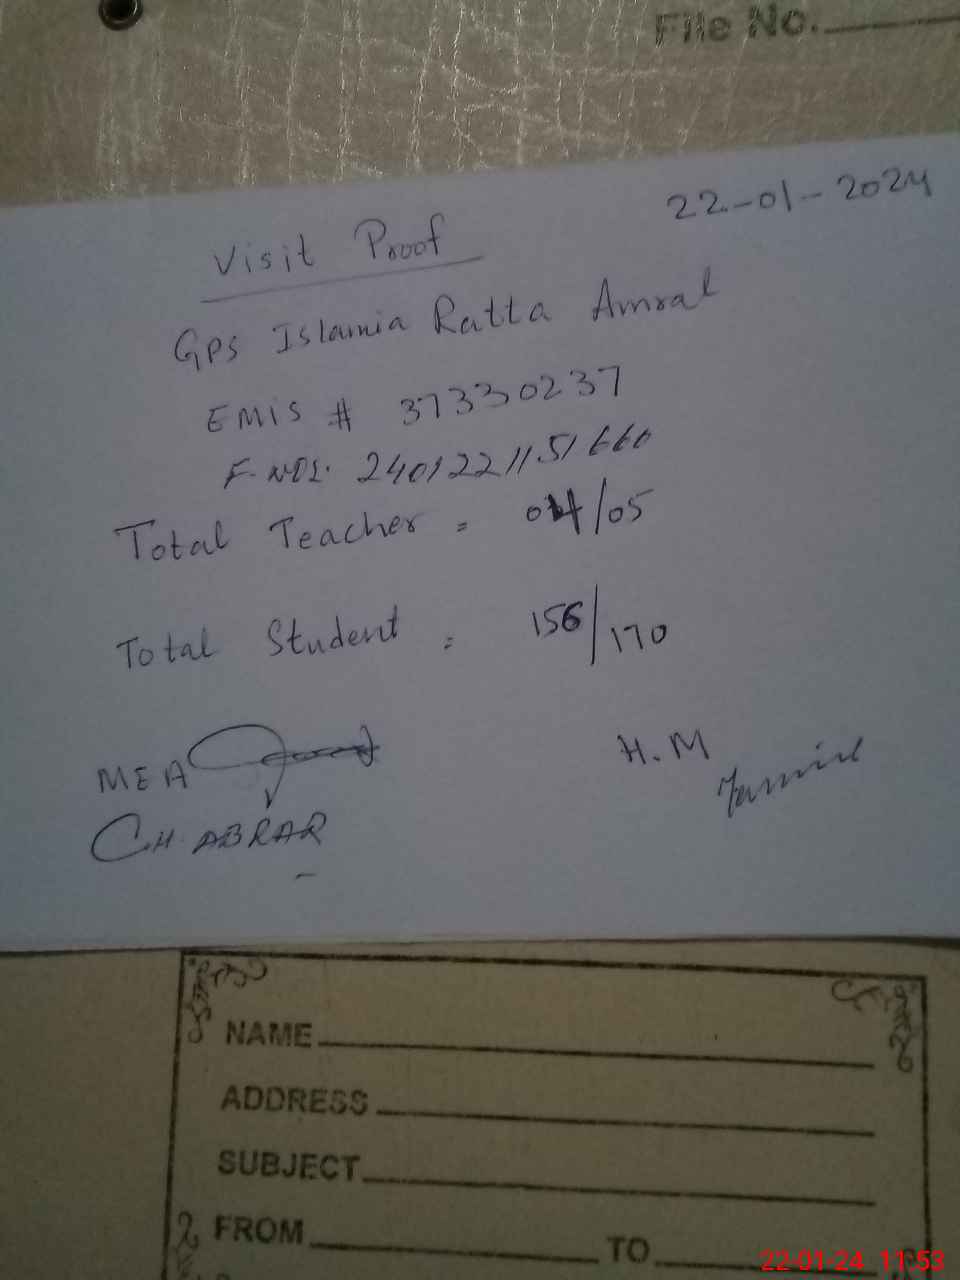 File No.
22-01-2024
Visit Proof
GPS Islamia Ratta Amral
EMIS # 37330237
2401221151660
Total Teacher = 04/05
Total Student = 156/170
MEA
CH. ABRAR
H.M
NAME
ADDRESS
SUBJECT
FROM TO
22-01-24 11:53